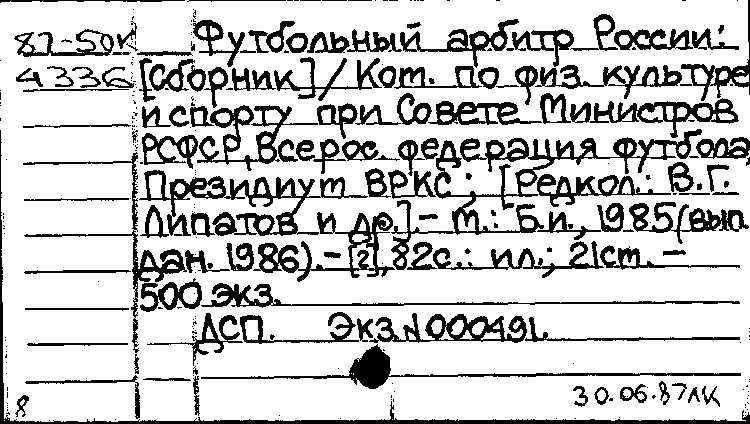 87-50К Футбольный арбитр России:
4336 [Сборник] / Ком. по физ. культуре
и спорту при Совете Министров
РСФСР, Всерос. федерация футбола,
Президиум ВРКС ; [Редкол.: В.Г.
Липатов и др.]. - М.: Б.и., 1985 (вып.
дан. 1986). - [2], 82с.: ил.; 21см. -
500 экз.
ДСП. Экз.N000491.
30.06.87ЛК
8